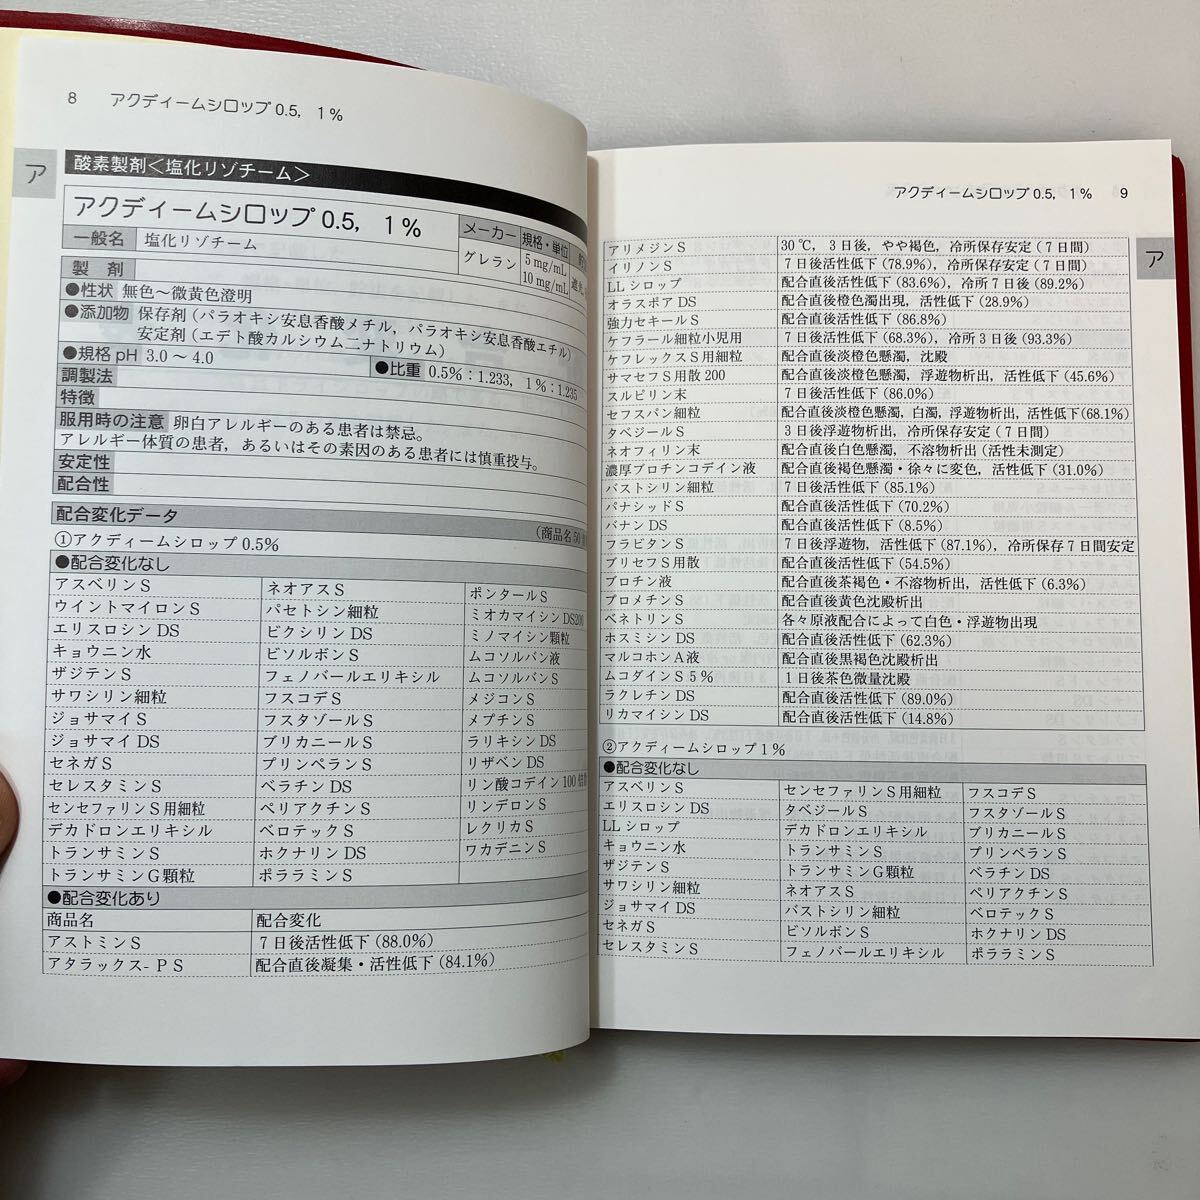 8 アクディームシロップ0.5, 1%
ア
酸素製剤<塩化リゾチーム>
アクディームシロップ0.5, 1%
メーカー 規格・単位
一般名 塩化リゾチーム
グレラン 5 mg/mL
10 mg/mL
製 剤
●性状 無色～微黄色澄明
●添加物 保存剤 (パラオキシ安息香酸メチル, パラオキシ安息香酸エチル)
安定剤 (エデト酸カルシウム二ナトリウム)
●規格 pH 3.0 ～ 4.0 ●比重 0.5% : 1.233, 1% : 1.235
調製法
特徴
服用時の注意 卵白アレルギーのある患者は禁忌。
アレルギー体質の患者, あるいはその素因のある患者には慎重投与。
安定性
配合性
配合変化データ (商品名50
①アクディームシロップ 0.5%
●配合変化なし
アスベリン S ネオアス S ポンタール S
ウイントマイロン S パセトシン細粒 ミオカマイシン DS200
エリスロシン DS ビクシリン DS ミノマイシン顆粒
キョウニン水 ビソルボン S ムコソルバン液
ザジテン S フェノバールエリキシル ムコソルバン S
サワシリン細粒 フスコデ S メジコン S
ジョサマイ S フスタゾール S メプチン S
ジョサマイ DS ブリカニール S ラリキシン DS
セネガ S プリンペラン S リザベン DS
セレスタミン S ベラチン DS リン酸コデイン 100 倍
センセファリン S 用細粒 ペリアクチン S リンデロン S
デカドロンエリキシル ベロテック S レクリカ S
トランサミン S ホクナリン DS ワカデニン S
トランサミン G 顆粒 ポララミン S
●配合変化あり
商品名 配合変化
アストミン S 7 日後活性低下 (88.0%)
アタラックス- P S 配合直後凝集・活性低下 (84.1%)
アクディームシロップ 0.5, 1% 9
ア
アリメジン S 30 ℃, 3 日後, やや褐色, 冷所保存安定 (7 日間)
イリノン S 7 日後活性低下 (78.9%), 冷所保存安定 (7 日間)
LL シロップ 配合直後活性低下 (83.6%), 冷所 7 日後 (89.2%)
オラスポア DS 配合直後橙色濁出現, 活性低下 (28.9%)
強力セキール S 配合直後活性低下 (86.8%)
ケフラール細粒小児用 7 日後活性低下 (68.3%), 冷所 3 日後 (93.3%)
ケフレックス S 用細粒 配合直後淡橙色懸濁, 沈殿
サマセフ S 用散 200 配合直後淡橙色懸濁, 浮遊物析出, 活性低下 (45.6%)
スルピリン末 7 日後活性低下 (86.0%)
セフスパン細粒 配合直後淡橙色懸濁, 白濁, 浮遊物析出, 活性低下 (68.1%)
タベジール S 3 日後浮遊物析出, 冷所保存安定 (7 日間)
ネオフィリン末 配合直後白色懸濁, 不溶物析出 (活性未測定)
濃厚ブロチンコデイン液 配合直後褐色懸濁・徐々に変色, 活性低下 (31.0%)
バストシリン細粒 7 日後活性低下 (85.1%)
パナシッド S 配合直後活性低下 (70.2%)
バナン DS 配合直後活性低下 (8.5%)
フラビタン S 7 日後浮遊物, 活性低下 (87.1%), 冷所保存 7 日間安定
ブリセフ S 用散 配合直後活性低下 (54.5%)
ブロチン液 配合直後茶褐色・不溶物析出, 活性低下 (6.3%)
プロメチン S 配合直後黄色沈殿析出
ベネトリン S 各々原液配合によって白色・浮遊物出現
ホスミシン DS 配合直後活性低下 (62.3%)
マルコホン A 液 配合直後黒褐色沈殿析出
ムコダイン S 5 % 1 日後茶色微量沈殿
ラクレチン DS 配合直後活性低下 (89.0%)
リカマイシン DS 配合直後活性低下 (14.8%)
②アクディームシロップ 1 %
●配合変化なし
アスベリン S センセファリン S 用細粒 フスコデ S
エリスロシン DS タベジール S フスタゾール S
LL シロップ デカドロンエリキシル ブリカニール S
キョウニン水 トランサミン S プリンペラン S
ザジテン S トランサミン G 顆粒 ベラチン DS
サワシリン細粒 ネオアス S ペリアクチン S
ジョサマイ DS バストシリン細粒 ベロテック S
セネガ S ビソルボン S ホクナリン DS
セレスタミン S フェノバールエリキシル ポララミン S